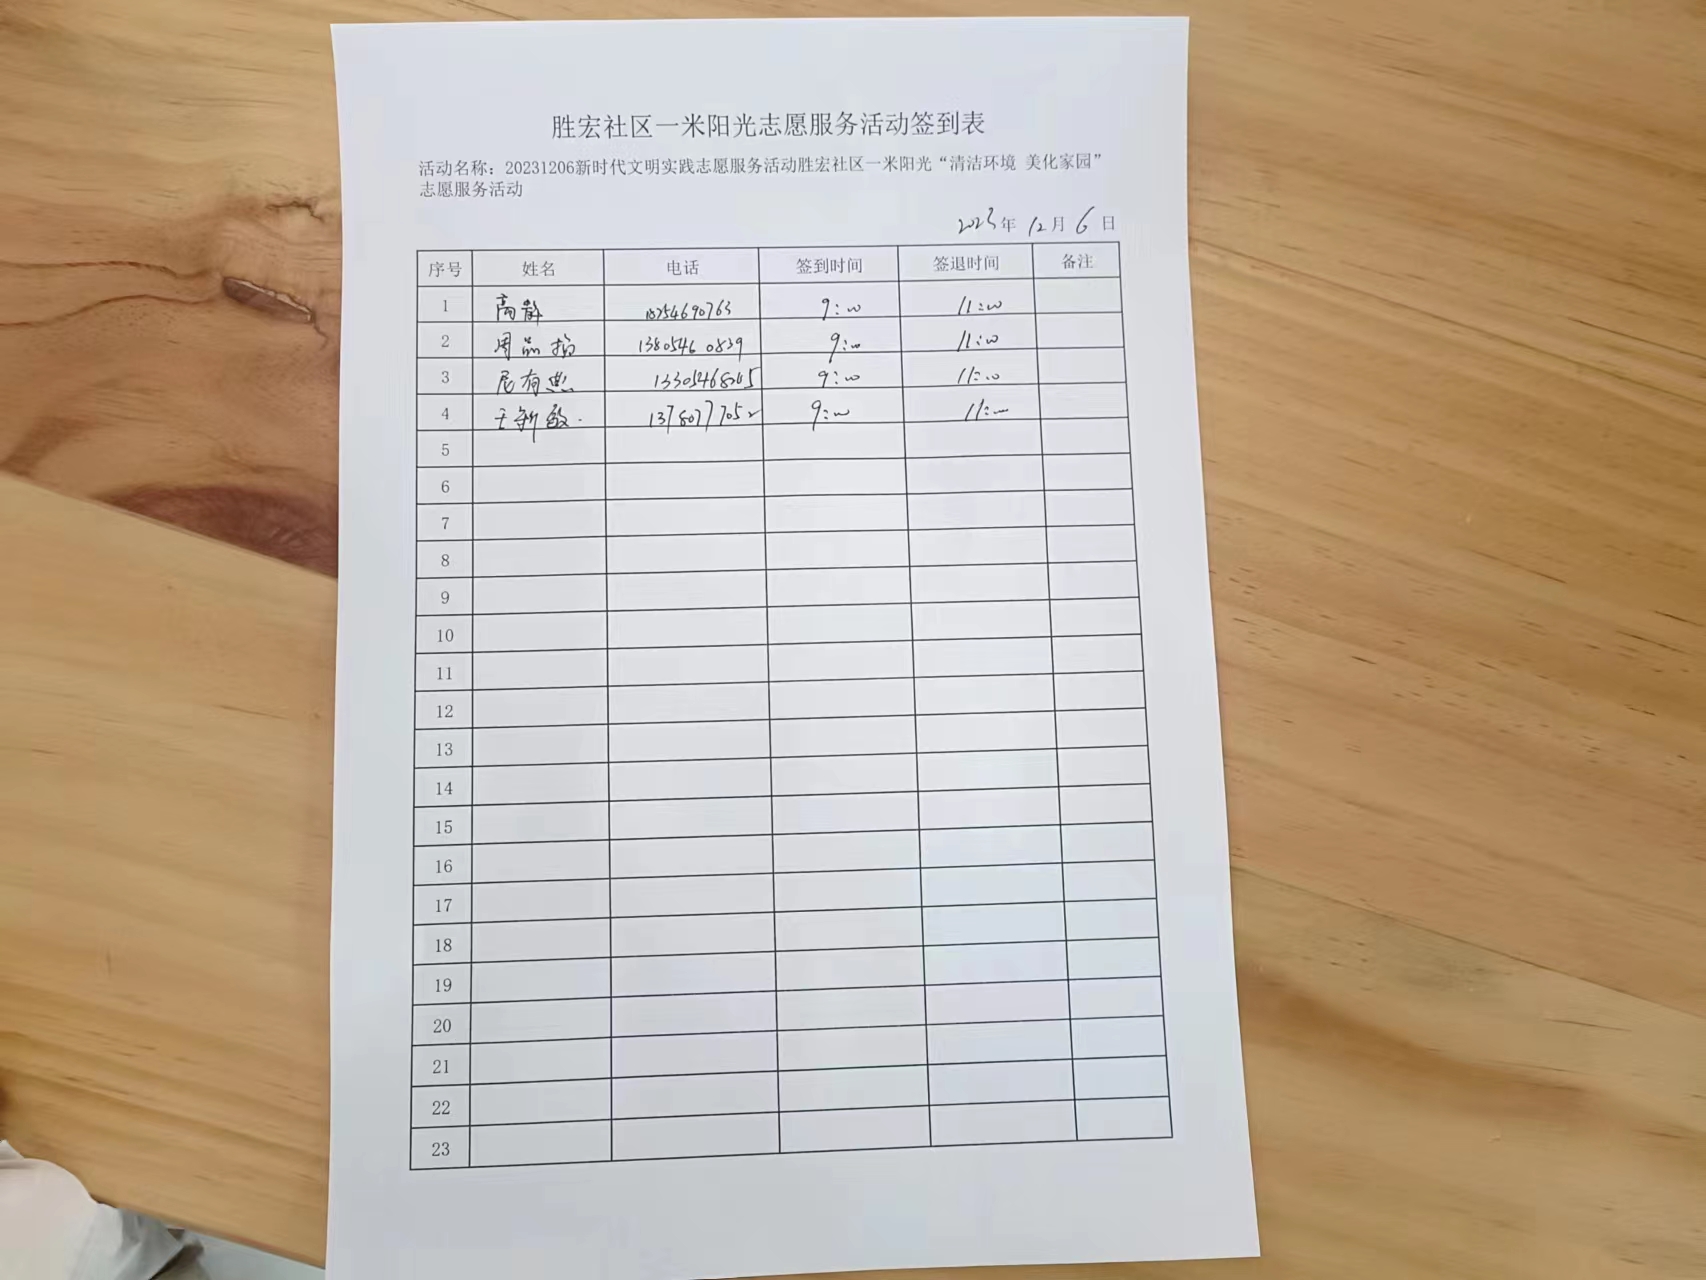 胜宏社区一米阳光志愿服务活动签到表
活动名称：20231206新时代文明实践志愿服务活动胜宏社区一米阳光“清洁环境 美化家园”
志愿服务活动
2023年 12月 6日
序号 姓名 电话 签到时间 签退时间 备注
1 高静 18754690763 9:00 11:00
2 周品 13805460839 9:00 11:00
3 尼有 9:00 11:00
4 王新敏 13780777052 9:00 11:00
5
6
7
8
9
10
11
12
13
14
15
16
17
18
19
20
21
22
23